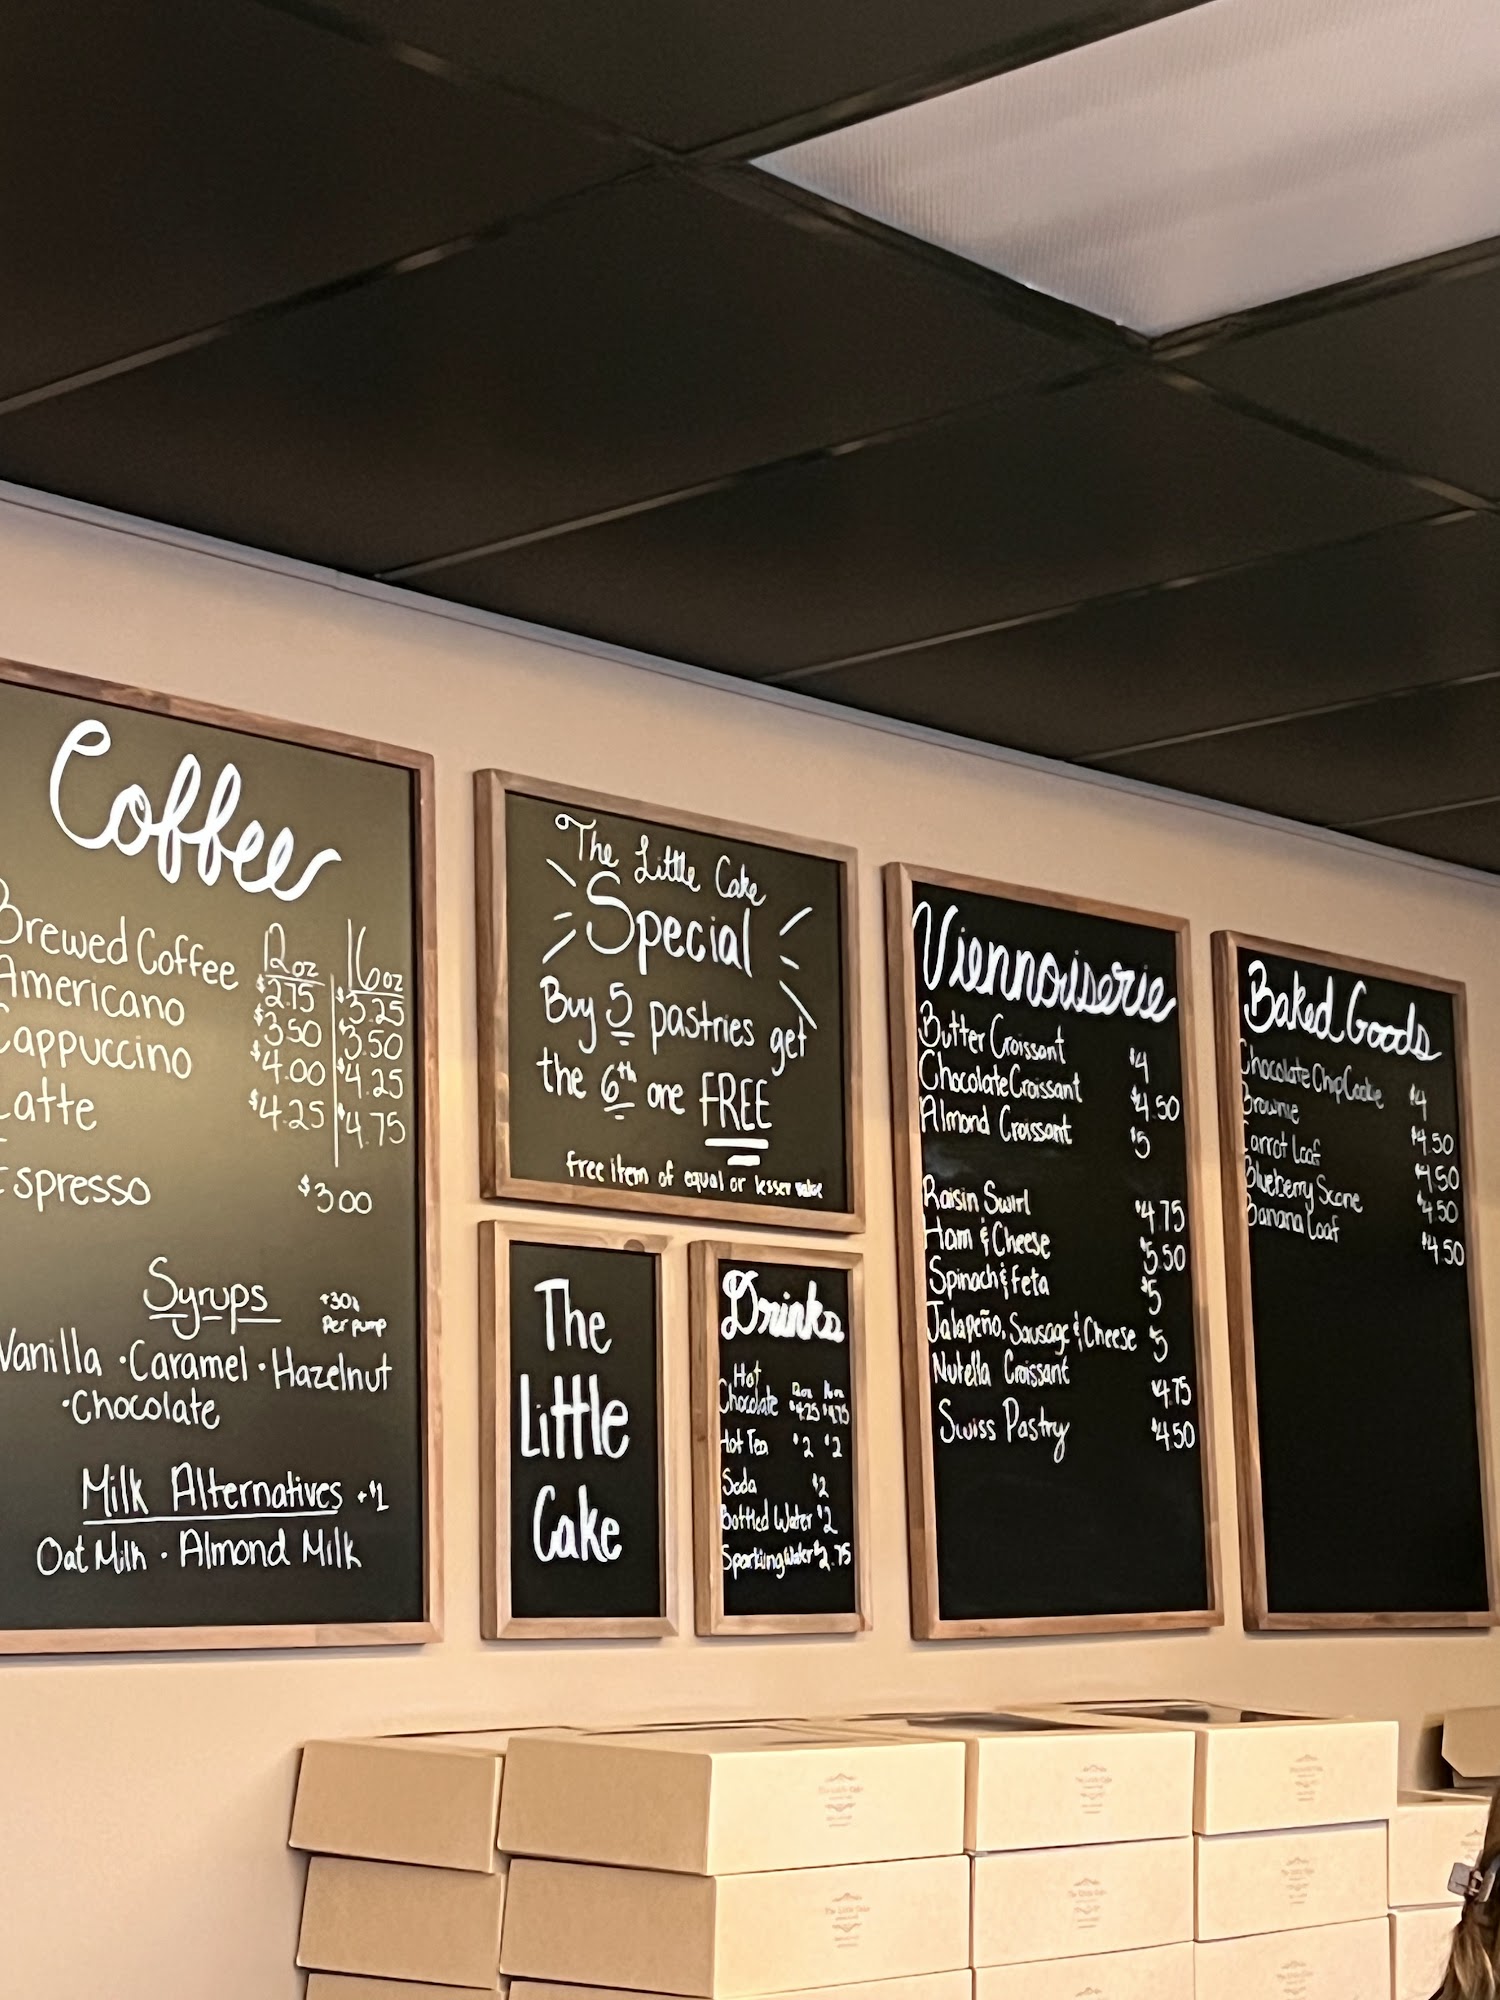 Coffee
12oz 16oz
Brewed Coffee $2.75 $3.25
Americano $3.50 $3.50
Cappuccino $4.00 $4.25
Latte $4.25 $4.75
Espresso $3.00
Syrups +30¢
Per pump
Vanilla · Caramel · Hazelnut
· Chocolate
Milk Alternatives +$1
Oat Milk · Almond Milk
The Little Cake
Special
Buy 5 pastries get
the 6th one FREE
free item of equal or lesser value
The
Little
Cake
Drinks
Hot
Chocolate 12oz $4.25 16oz $4.75
Hot Tea $2 $2
Soda $2
Bottled Water $2
Sparkling Water $2.75
Viennoiserie
Butter Croissant $4
Chocolate Croissant $4.50
Almond Croissant $5
Raisin Swirl $4.75
Ham & Cheese $5.50
Spinach & feta $5
Jalapeño, Sausage & Cheese $5
Nutella Croissant $4.75
Swiss Pastry $4.50
Baked Goods
Chocolate Chip Cookie $4
Brownie $4.50
Carrot Loaf $4.50
Blueberry Scone $4.50
Banana Loaf $4.50
The Little Cake
The Little Cake
The Little Cake
The Little Cake